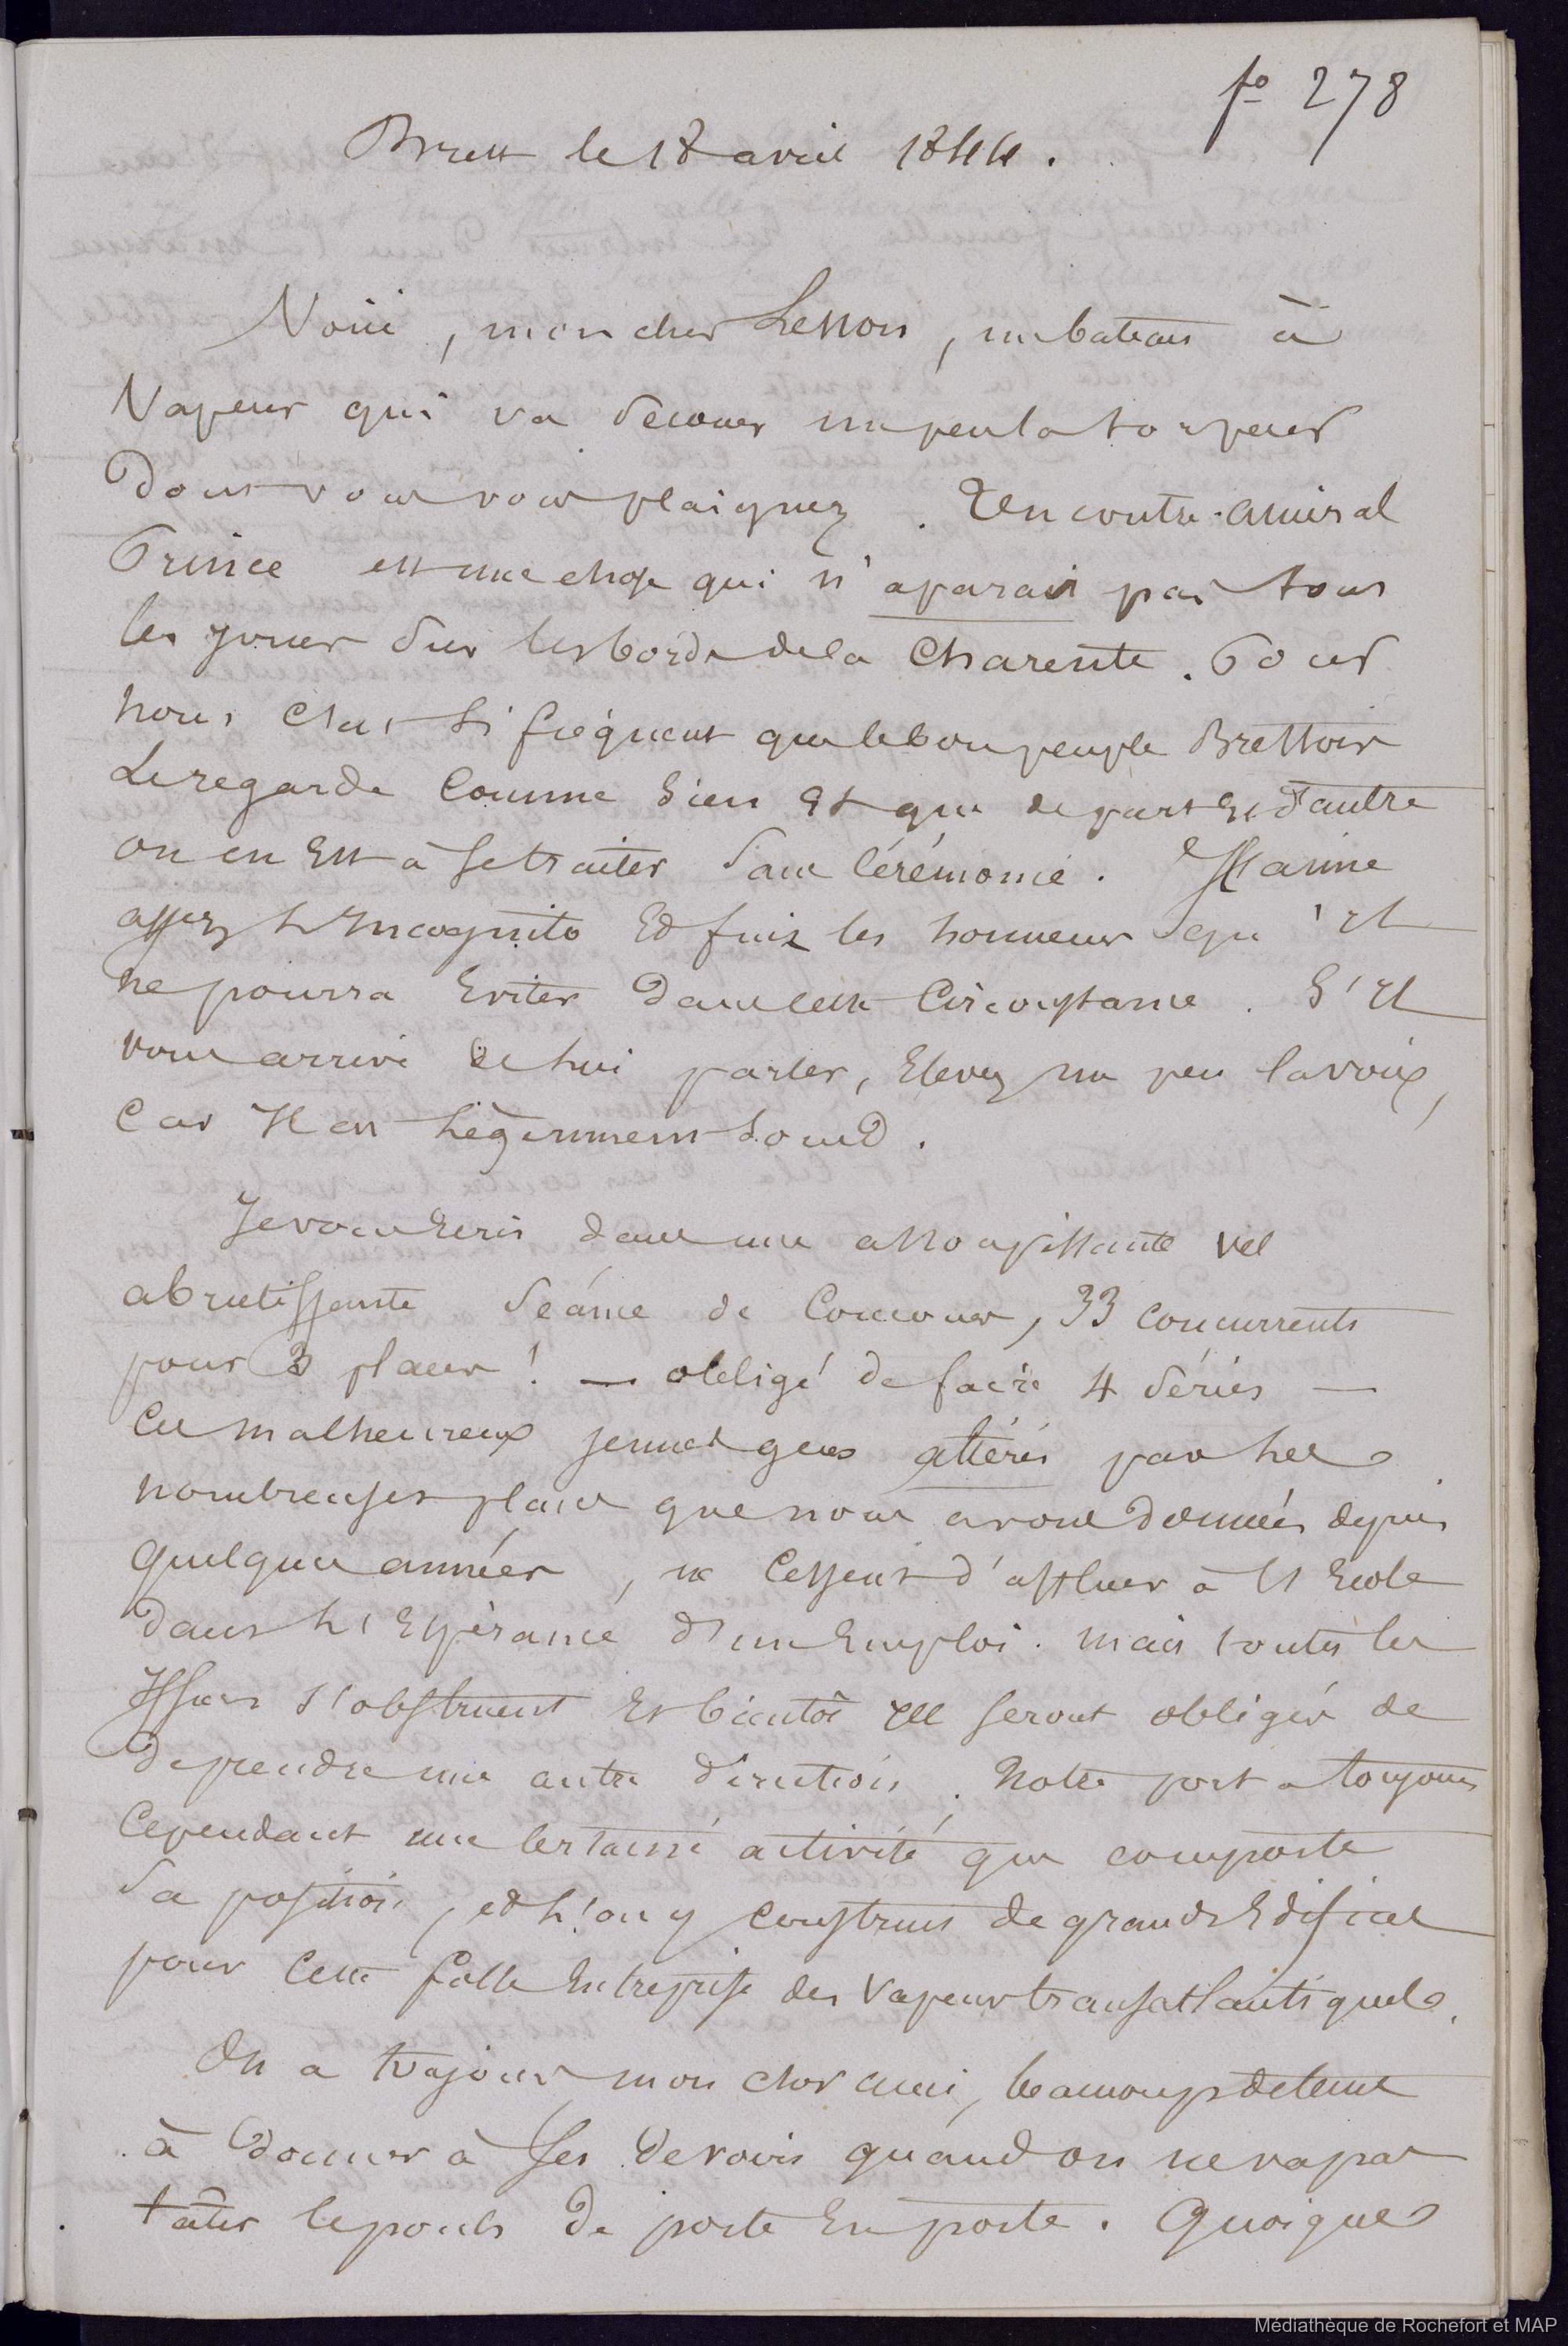 fo 278
Brest le 18 avril 1844.
Voici, mon cher Lesson, un bateau à
Vapeur qui va secouer un peu la torpeur
dont vous vous plaignez. Un contre-amiral
Prince est une chose qui n'aparait pas tous
les jours sur les bords de la Charente. Pour
nous c'est si fréquent que le bon peuple Brestois
Le regarde comme sien et que de part et d'autre
on en est à se traiter sans cérémonie. Il aime
assez l'Incognito et fuit les honneurs qu'il
ne pourra Eviter dans cette Circonstance. S'il
vous arrive de lui parler, Elevez un peu la voix,
Car Il est légèrement sourd.
Je vous Ecris dans une assoupissante vel
abrutissante séance de Concours, 33 concurrents
pour 3 places! — obligé de faire 4 séries —
Ces malheureux jeunes gens attérés par les
nombreuses places que nous avons données depuis
quelques années, ne Cessent d'affluer à l'Ecole
dans l'Espérance d'un Emploi. mais toutes les
Issues s'obstruent et bientôt Ils seront obligés de
de prendre une autre direction. Notre port a toujours
Cependant une certaine activité que comporte
sa position, et l'on y construit de grands Edifices
pour cette folle Entreprise des Vapeurs transatlantiques.
On a toujours mon cher ami, beaucoup de tems
à donner à ses devoirs quand on ne va pas
tâter le pouls de porte En porte. Quoique
Médiathèque de Rochefort et MAP